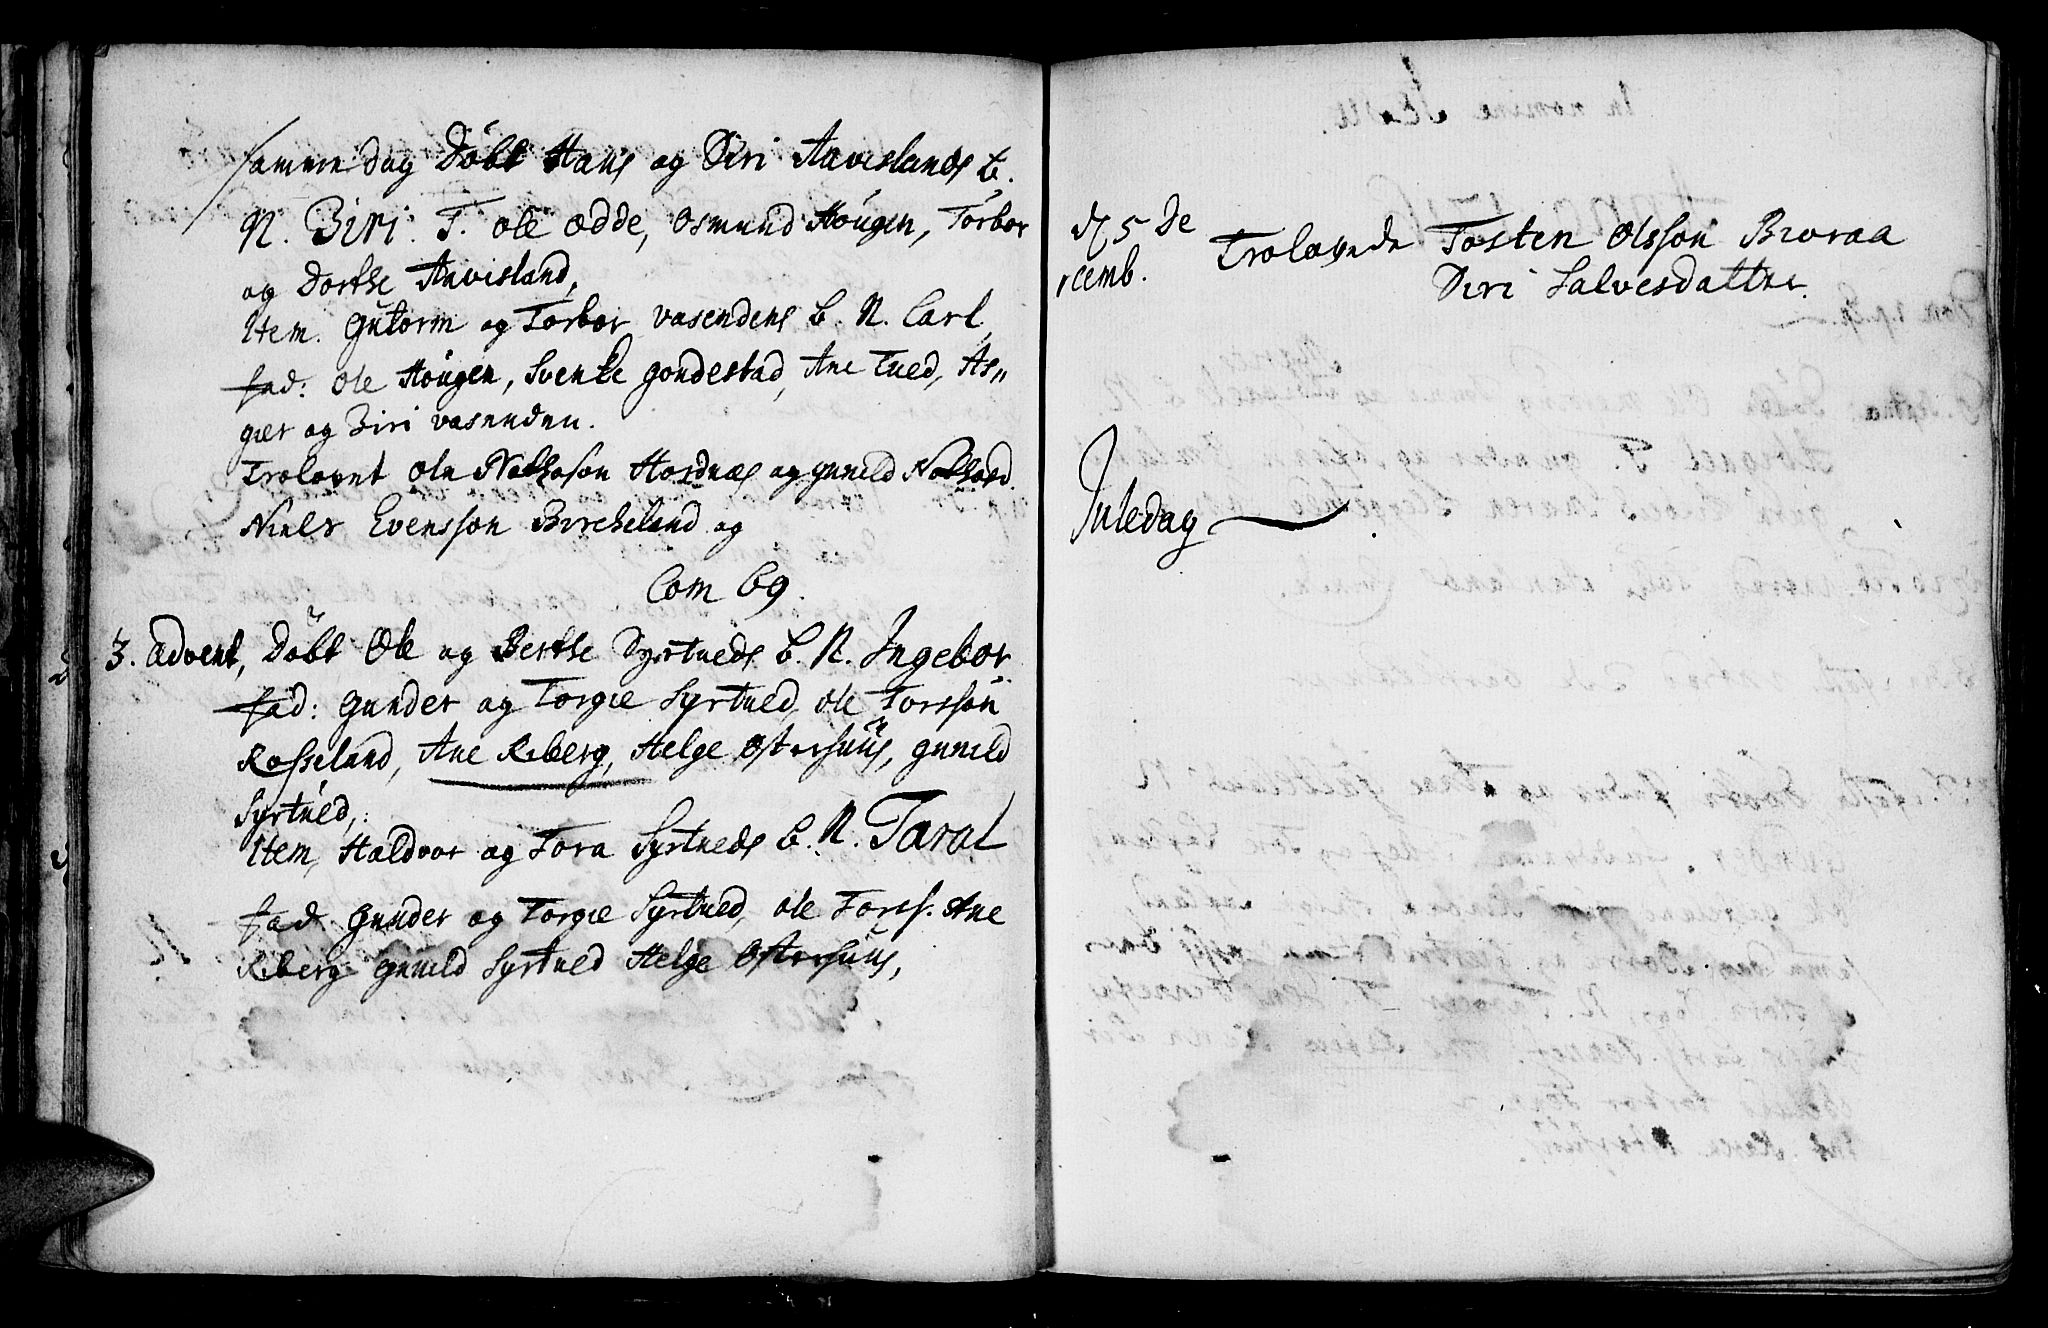 samme dag Döbt Hans og Siri Aavislands b.
N. Siri. F. Ole Ædde, Osmund Hougen, Torbor
og Dorthe Aavisland,
Item. Gutorm og Torbor vasendens b. N. Carl
fad: Ole Hougen, Svenke gondestad, Ane Tued, As,,
gier og Siri vasenden.
Trolovet Ole Hordnæs og guneld
Niels Evensson Birckeland og
Com 69.
3. Advent, Döbt Ole og Berthe Syrtueds b. N. Ingebor
fad: Gunder og Torgie Syrtued, ole Torsson
Rosseland, Ane Reberg, Helge Ostershuus, guneld
Syrtued,
Item, Haldvor og Tora Syrtueds b. N. Taral
fad Gunder og Torgie Syrtued, ole Torss. Ane
Reberg Guneld Syrtued Helge Ostershuus,
d 5 De
cemb. Trolovede Tosten Olsson
Siri Salvesdatter
Juledag